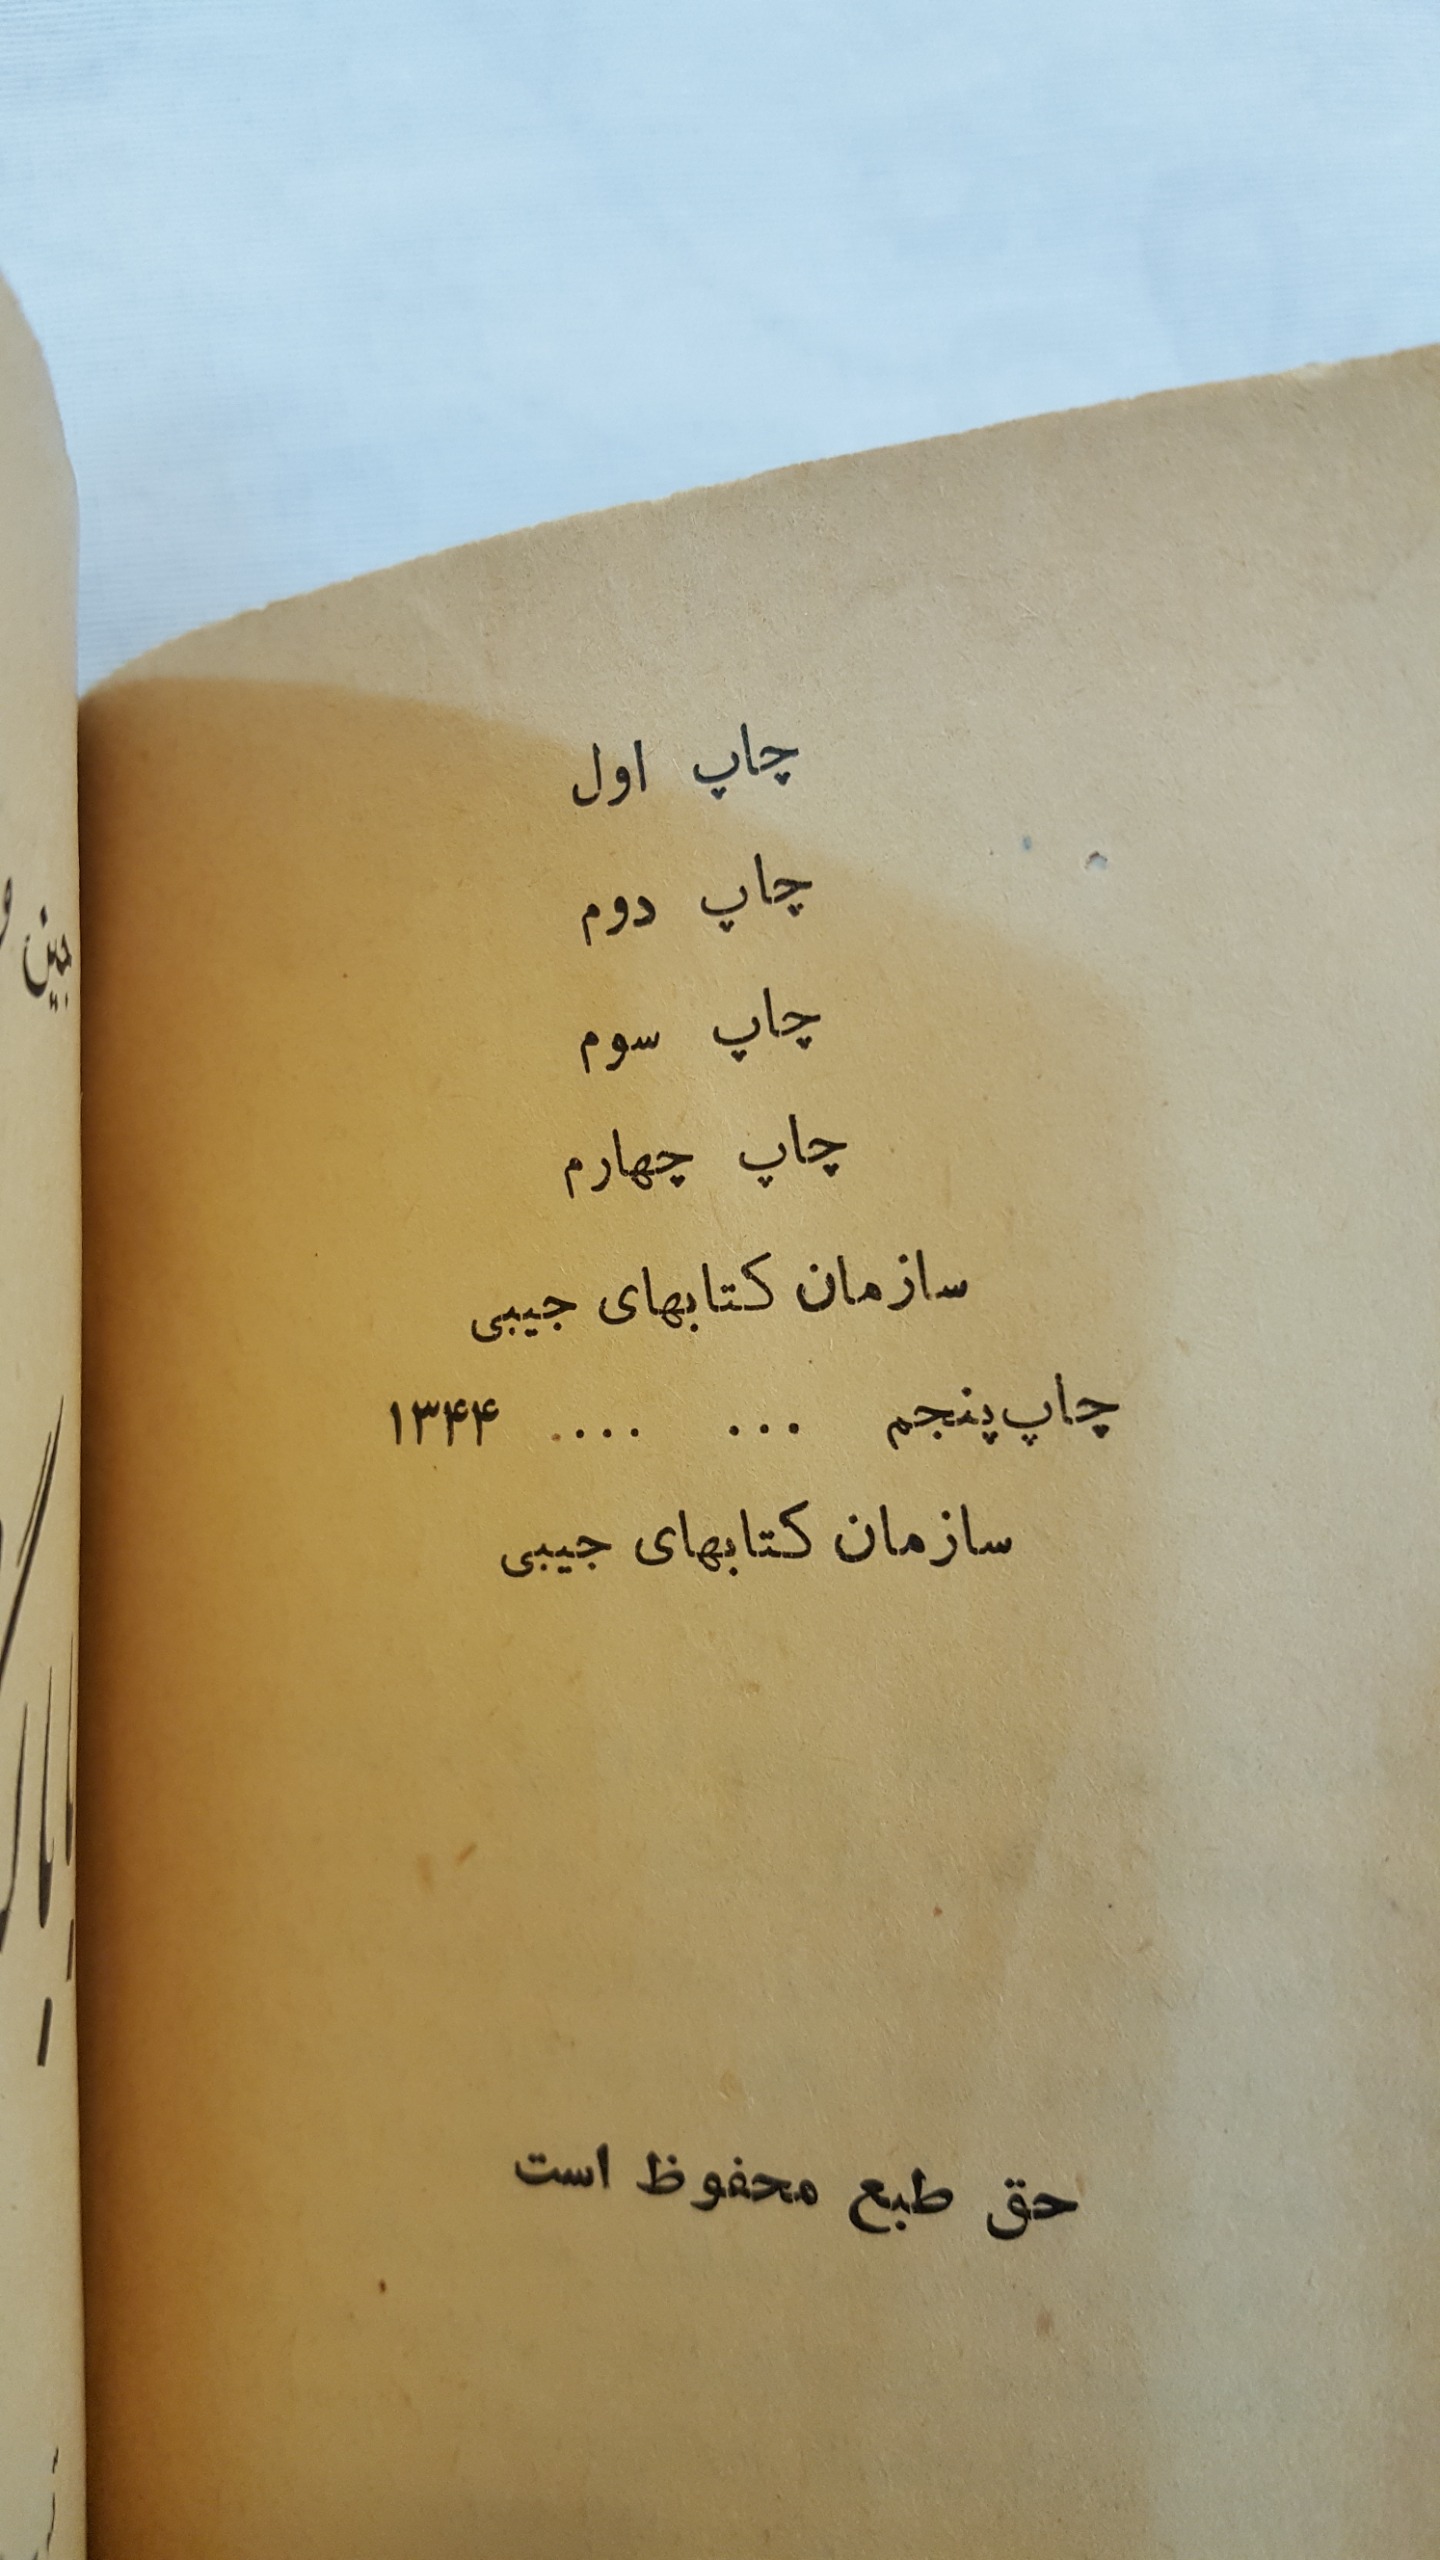 چاپ اول
چاپ دوم
چاپ سوم
چاپ چهارم
سازمان کتابهای جیبی
چاپ پنجم ... .... ۱۳۴۴
سازمان کتابهای جیبی
حق طبع محفوظ است